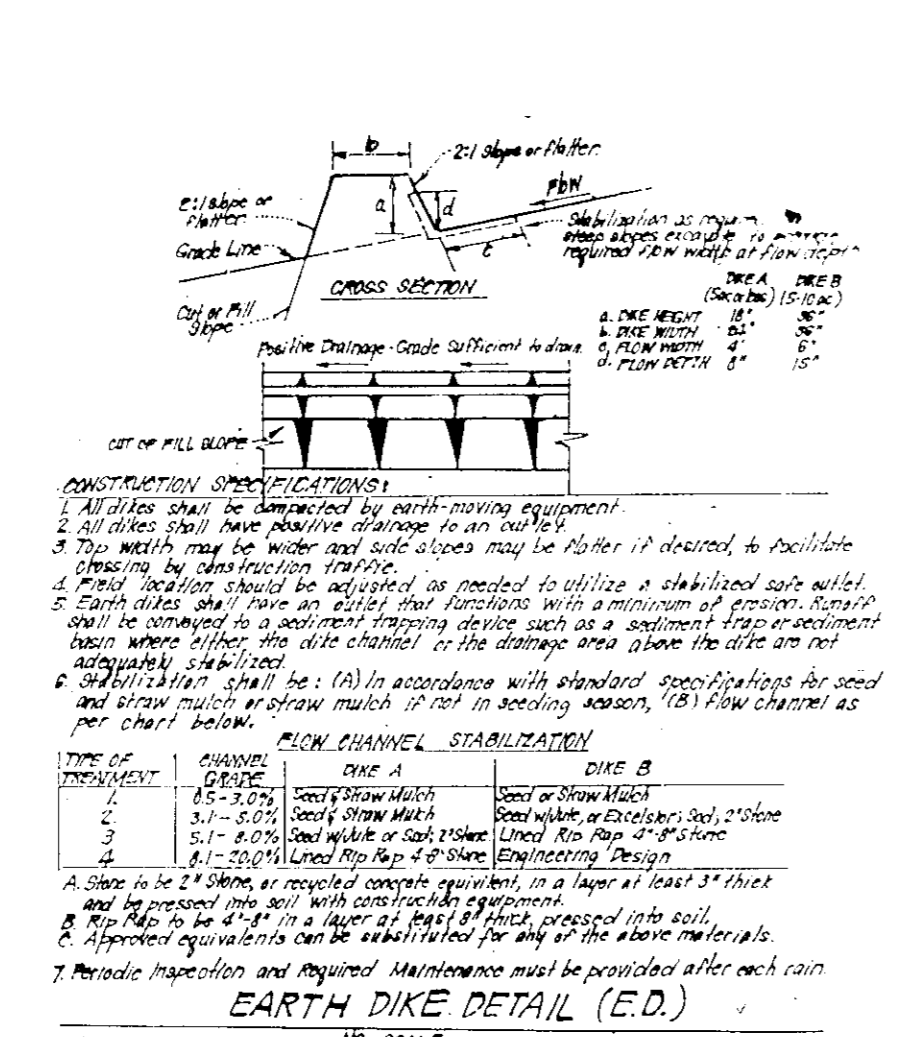 b
2:1 Slope or flatter.
Flow
2:1 slope or
flatter
a
d
Stabilization as requir.
steep slopes excavate to
required flow width at flow depth
Grade Line
c
CROSS SECTION
Cut or Fill
Slope
DIKE A DIKE B
(5ac or less) (5-10 ac)
a. DIKE HEIGHT 18" 36"
b. DIKE WIDTH 36"
c. FLOW WIDTH 4' 6'
d. FLOW DEPTH 8" 15"
Positive Drainage - Grade Sufficient to drain.
CUT OR FILL SLOPE
CONSTRUCTION SPECIFICATIONS:
1. All dikes shall be compacted by earth-moving equipment.
2. All dikes shall have positive drainage to an outlet.
3. Top width may be wider and side slopes may be flatter if desired, to facilitate
crossing by construction traffic.
4. Field location should be adjusted as needed to utilize a stabilized safe outlet.
5. Earth dikes shall have an outlet that functions with a minimum of erosion. Runoff
shall be conveyed to a sediment trapping device such as a sediment trap or sediment
basin where either the dike channel or the drainage area above the dike are not
adequately stabilized.
6. Stabilization shall be: (A) In accordance with standard specifications for seed
and straw mulch or straw mulch if not in seeding season, (B) flow channel as
per chart below.
FLOW CHANNEL STABILIZATION
TYPE OF TREATMENT CHANNEL GRADE DIKE A DIKE B
1. 0.5-3.0% Seed & Straw Mulch Seed or Straw Mulch
2. 3.1-5.0% Seed & Straw Mulch Seed w/Jute, or Excelsior; Sod; 2" Stone
3 5.1-8.0% Seed w/Jute or Sod; 2" Stone Lined Rip Rap 4"-8" Stone
4 8.1-20.0% Lined Rip Rap 4-8" Stone Engineering Design
A. Stone to be 2" Stone, or recycled concrete equivilent, in a layer at least 3" thick
and be pressed into soil with construction equipment.
B. Rip Rap to be 4"-8" in a layer at least 8" thick, pressed into soil.
C. Approved equivalents can be substituted for any of the above materials.
7. Periodic Inspection and Required Maintenance must be provided after each rain.
EARTH DIKE DETAIL (E.D.)